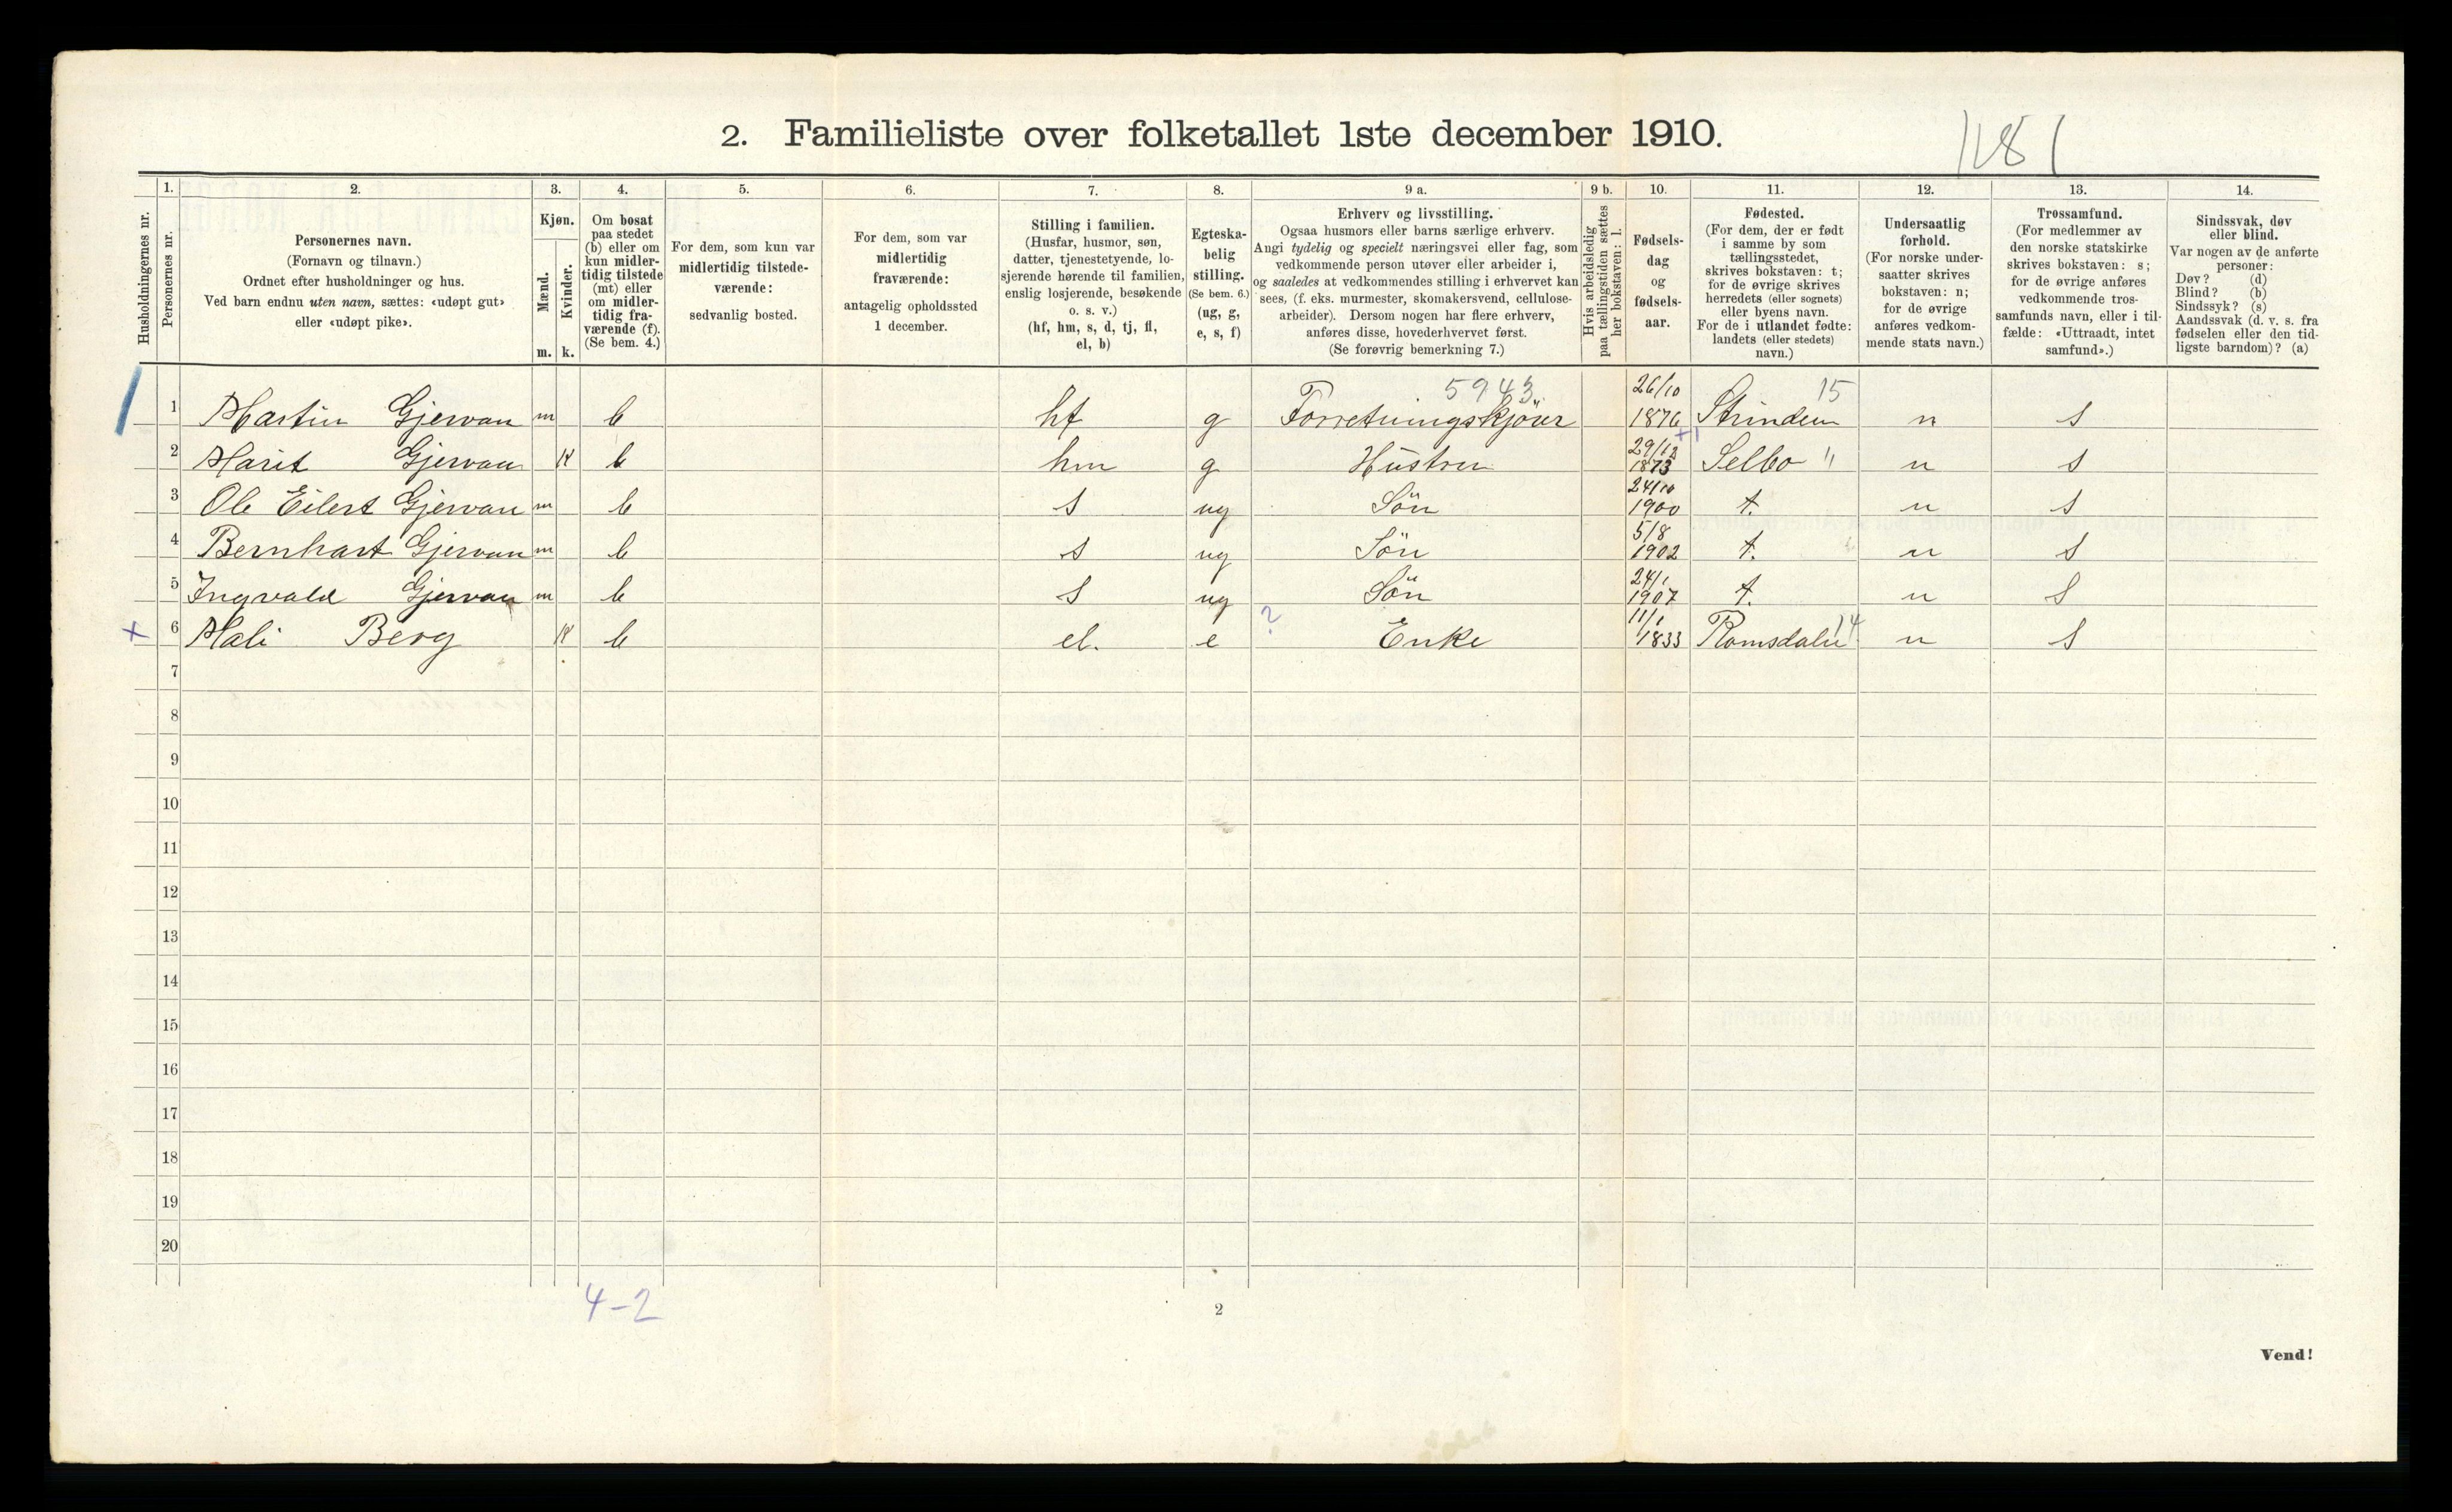 2. Familieliste over folketallet 1ste december 1910.
1. 2. 3. 4. 5. 6. 7. 8. 9 a. 9 b. 10. 11. 12. 13. 14.
Husholdningernes nr.
Personernes nr.
Personernes navn.
(Fornavn og tilnavn.)
Ordnet efter husholdninger og hus.
Ved barn endnu uten navn, sættes: «udøpt gut»
eller «udøpt pike».
Kjøn.
Mænd.
Kvinder.
m. k.
Om bosat
paa stedet
(b) eller om
kun midler-
tidig tilstede
(mt) eller
om midler-
tidig fra-
værende (f).
(Se bem. 4.)
For dem, som kun var
midlertidig tilstede-
værende:
sedvanlig bosted.
For dem, som var
midlertidig
fraværende:
antagelig opholdssted
1 december.
Stilling i familien.
(Husfar, husmor, søn,
datter, tjenestetyende, lo-
sjerende hørende til familien,
enslig losjerende, besøkende
o. s. v.)
(hf, hm, s, d, tj, fl,
el, b)
Egteska-
belig
stilling.
(Se bem. 6.)
(ug, g,
e, s, f)
Erhverv og livsstilling.
Ogsaa husmors eller barns særlige erhverv.
Angi tydelig og specielt næringsvei eller fag, som
vedkommende person utøver eller arbeider i,
og saaledes at vedkommendes stilling i erhvervet kan
sees, (f. eks. murmester, skomakersvend, cellulose-
arbeider). Dersom nogen har flere erhverv,
anføres disse, hovederhvervet først.
(Se forøvrig bemerkning 7.)
Hvis arbeidsledig
paa tællingstiden sættes
her bokstaven: l.
Fødsels-
dag
og
fødsels-
aar.
Fødested.
(For dem, der er født
i samme by som
tællingsstedet,
skrives bokstaven: t;
for de øvrige skrives
herredets (eller sognets)
eller byens navn.
For de i utlandet fødte:
landets (eller stedets)
navn.)
Undersaatlig
forhold.
(For norske under-
saatter skrives
bokstaven: n;
for de øvrige
anføres vedkom-
mende stats navn.)
Trossamfund.
(For medlemmer av
den norske statskirke
skrives bokstaven: s;
for de øvrige anføres
vedkommende tros-
samfunds navn, eller i til-
fælde: «Uttraadt, intet
samfund».)
Sindssvak, døv
eller blind.
Var nogen av de anførte
personer:
Døv? (d)
Blind? (b)
Sindssyk? (s)
Aandssvak (d. v. s. fra
fødselen eller den tid-
ligste barndom)? (a)
5943 26/10 15
1 Martin Gjervan m b hf g Forretningskjöer 1876 Strinden n s
29/12
2 Marit Gjervan K b hm g Hustru 1873 Selbo " n s
24/10
3 Ole Eilert Gjervan m b s ug Sön 1900 t. n s
5/8
4 Bernhart Gjervan m b s ug Sön 1902 t. n s
24/1
5 Ingvald Gjervan m b s ug Sön 1907 t. n s
? 11/1 14
+ 6 Mali Berg K b el. e Enke 1833 Romsdalen n s
7
8
9
10
11
12
13
14
15
16
17
18
19
20
4-2
2
Vend!